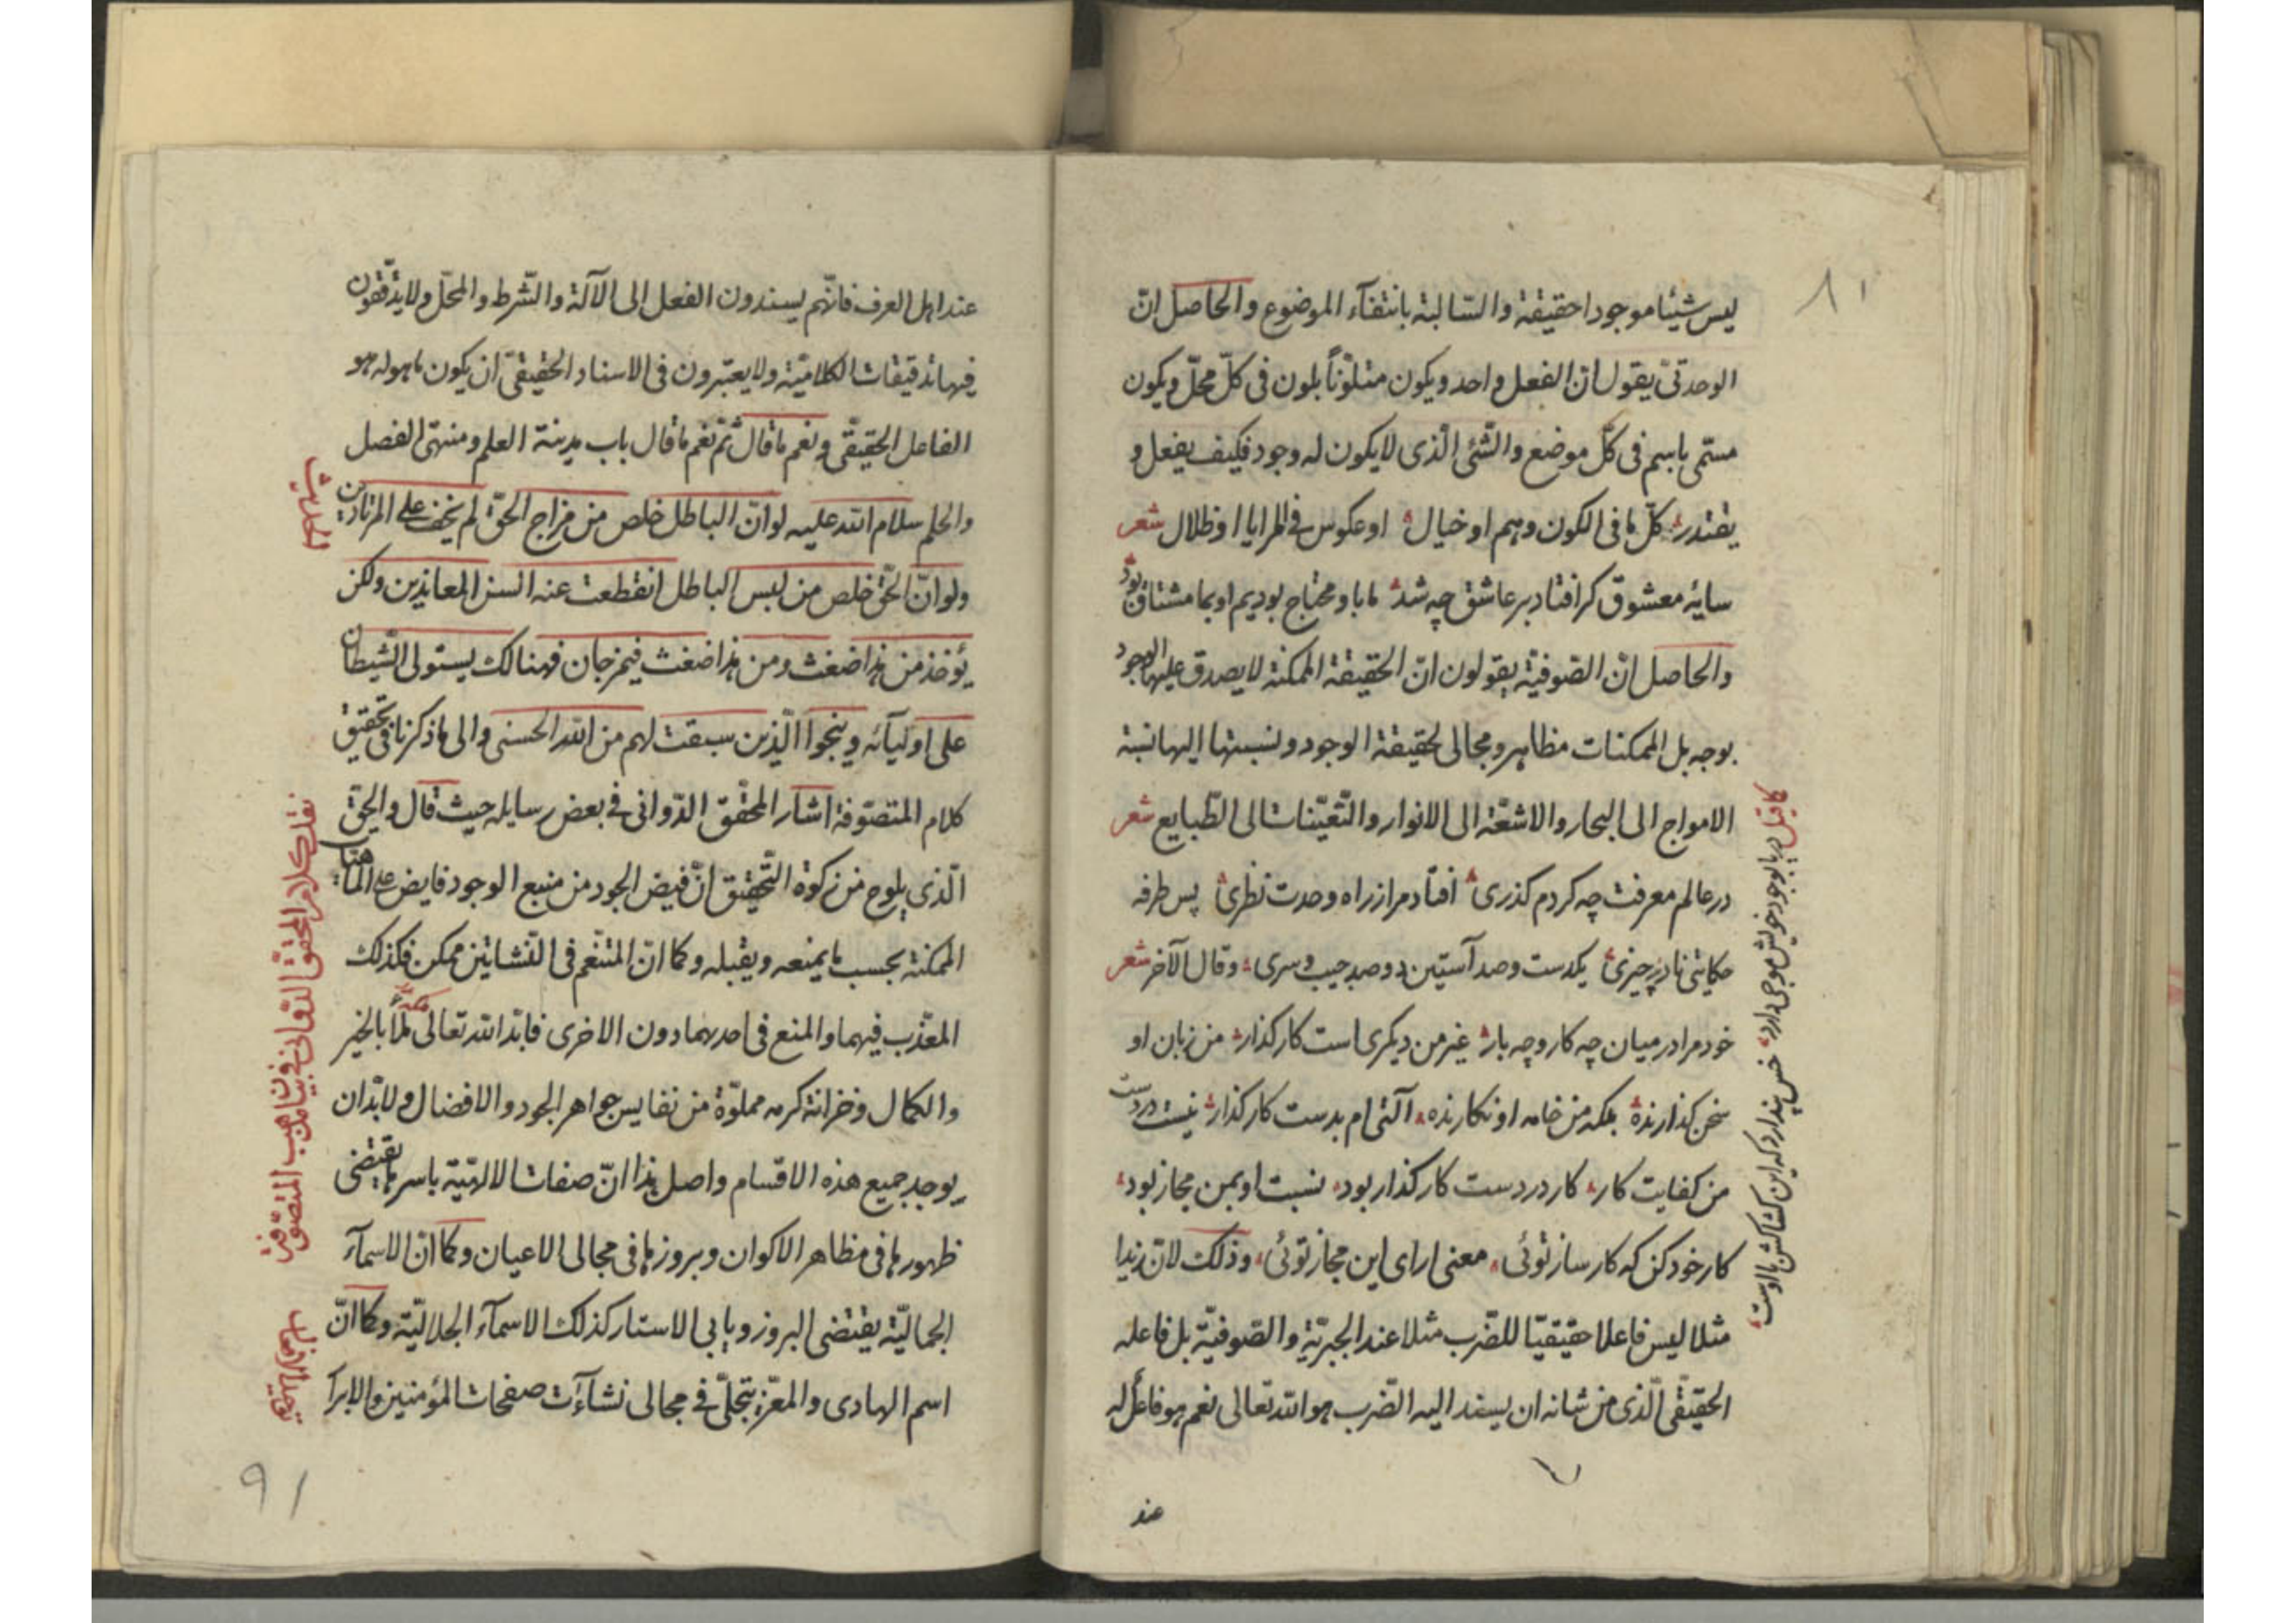 ٨١
ليس شيئا موجودا حقيقة والسالبة بانتفآء الموضوع والحاصل انّ
الوحدتىّ يقول انّ الفعل واحد ويكون متلوّناً بلون فى كلّ محلّ ويكون
مسمّى باسم فى كلّ موضع والشّئ الّذى لا يكون له وجود فكيف يفعل و
يقتدر كلّ ما فى الكون وهم او خيال او عكوس فى المرايا او ظلال شعر
سايۀ معشوق كر افتاد بر عاشق چه شد ما باو محتاج بوديم او بما مشتاق بود
والحاصل انّ الصّوفيّة يقولون انّ الحقيقة الممكنة لا يصدق عليها الوجود
بوجه بل الممكنات مظاهر ومجالى لحقيقة الوجود ونسبتها اليها نسبة
الامواج الى البحار والاشعّة الى الانوار والتّعيّنات الى الطّبايع شعر
در عالم معرفت چه كردم كذرى افتاد مرا ز راه وحدت نظرى پس طرفه
حكايتى نادر چيزى يكدست وصد آستين دو صد جيب وسرى وقال الآخر شعر
خود مرا در ميان چه كار وچه بار غير من ديكرى است كار كذار من زبان او
سخن كذارنده بلكه من خامه او نكارنده آلتى ام بدست كار كذار نيست در دست
من كفايت كار كار در دست كار كذار بود نسبت او بمن مجاز بود
كار خود كن كه كار ساز توئى معنى اراى اين مجاز توئى وذلك لانّ زيدا
مثلا ليس فاعلا حقيقيّا للضّرب مثلا عند الجبريّة والصّوفيّة بل فاعله
الحقيقّى الّذى من شانه ان يسند اليه الضّرب هو الله تعالى نعم هو فاعل له
عند
كما قيل دريا بوجود خويش موجى دارد خس پندارد كه اين كشاكش با اوست
عند اهل العرف فانّهم يسندون الفعل الى الآلة والشّرط والمحلّ ولا يدقّقون
فيها تدقيقات الكلاميّة ولا يعتبرون فى الاسناد الحقيقىّ ان يكون ما هو له هو
الفاعل الحقيقّى ونعم ما قال ثمّ نعم ما قال باب مدينة العلم ومنتهى الفصل
والحلم سلام الله عليه لو انّ الباطل خلص من مزاج الحقّ لم يخف على المرتادين
ولو انّ الحّق خلص من لبس الباطل انقطعت عنه السن المعاندين ولكن
يؤخذ من هذا ضغث ومن هذا ضغث فيمزجان فهنالك يستولى الشّيطان
على اوليآئه وينجوا الّذين سبقت لهم من الله الحسنى والى ما ذكرنا فى تحقيق
كلام المتصّوفة اشار المحّقق الدّوانى فى بعض رسايله حيث قال والحقّ
الّذى يلوح من زكوة التّحقيق انّ فيض الجود من منبع الوجود فايض على الماهيّات
الممكنة بحسب ما يمنعه ويقبله وكما انّ المتنّعم فى النّشاتين ممكن فكذلك
المعّذب فيهما والمنع فى احديهما دون الاخرى فابدّ الله تعالى لمّا بالخير
والكمال وخزانة كرمه مملوّة من نفايس جواهر الجود والافضال ولابّد ان
يوجد جميع هذه الاقسام واصل هذا انّ صفات الالهيّة باسرها يقتضى
ظهورها فى مظاهر الاكوان وبروزها فى مجالى الاعيان وكما انّ الاسمآء
الجماليّة يقتضى البروز ويابى الاستار كذلك الاسمآء الجلاليّة وكما انّ
اسم الهادى والمعّز يتجلّى فى مجالى نشاءآت صفحات المؤمنين والابرا
نقل كلام المحقّق الدّوانى فى بيان مذهب المتصّوفة
٩١